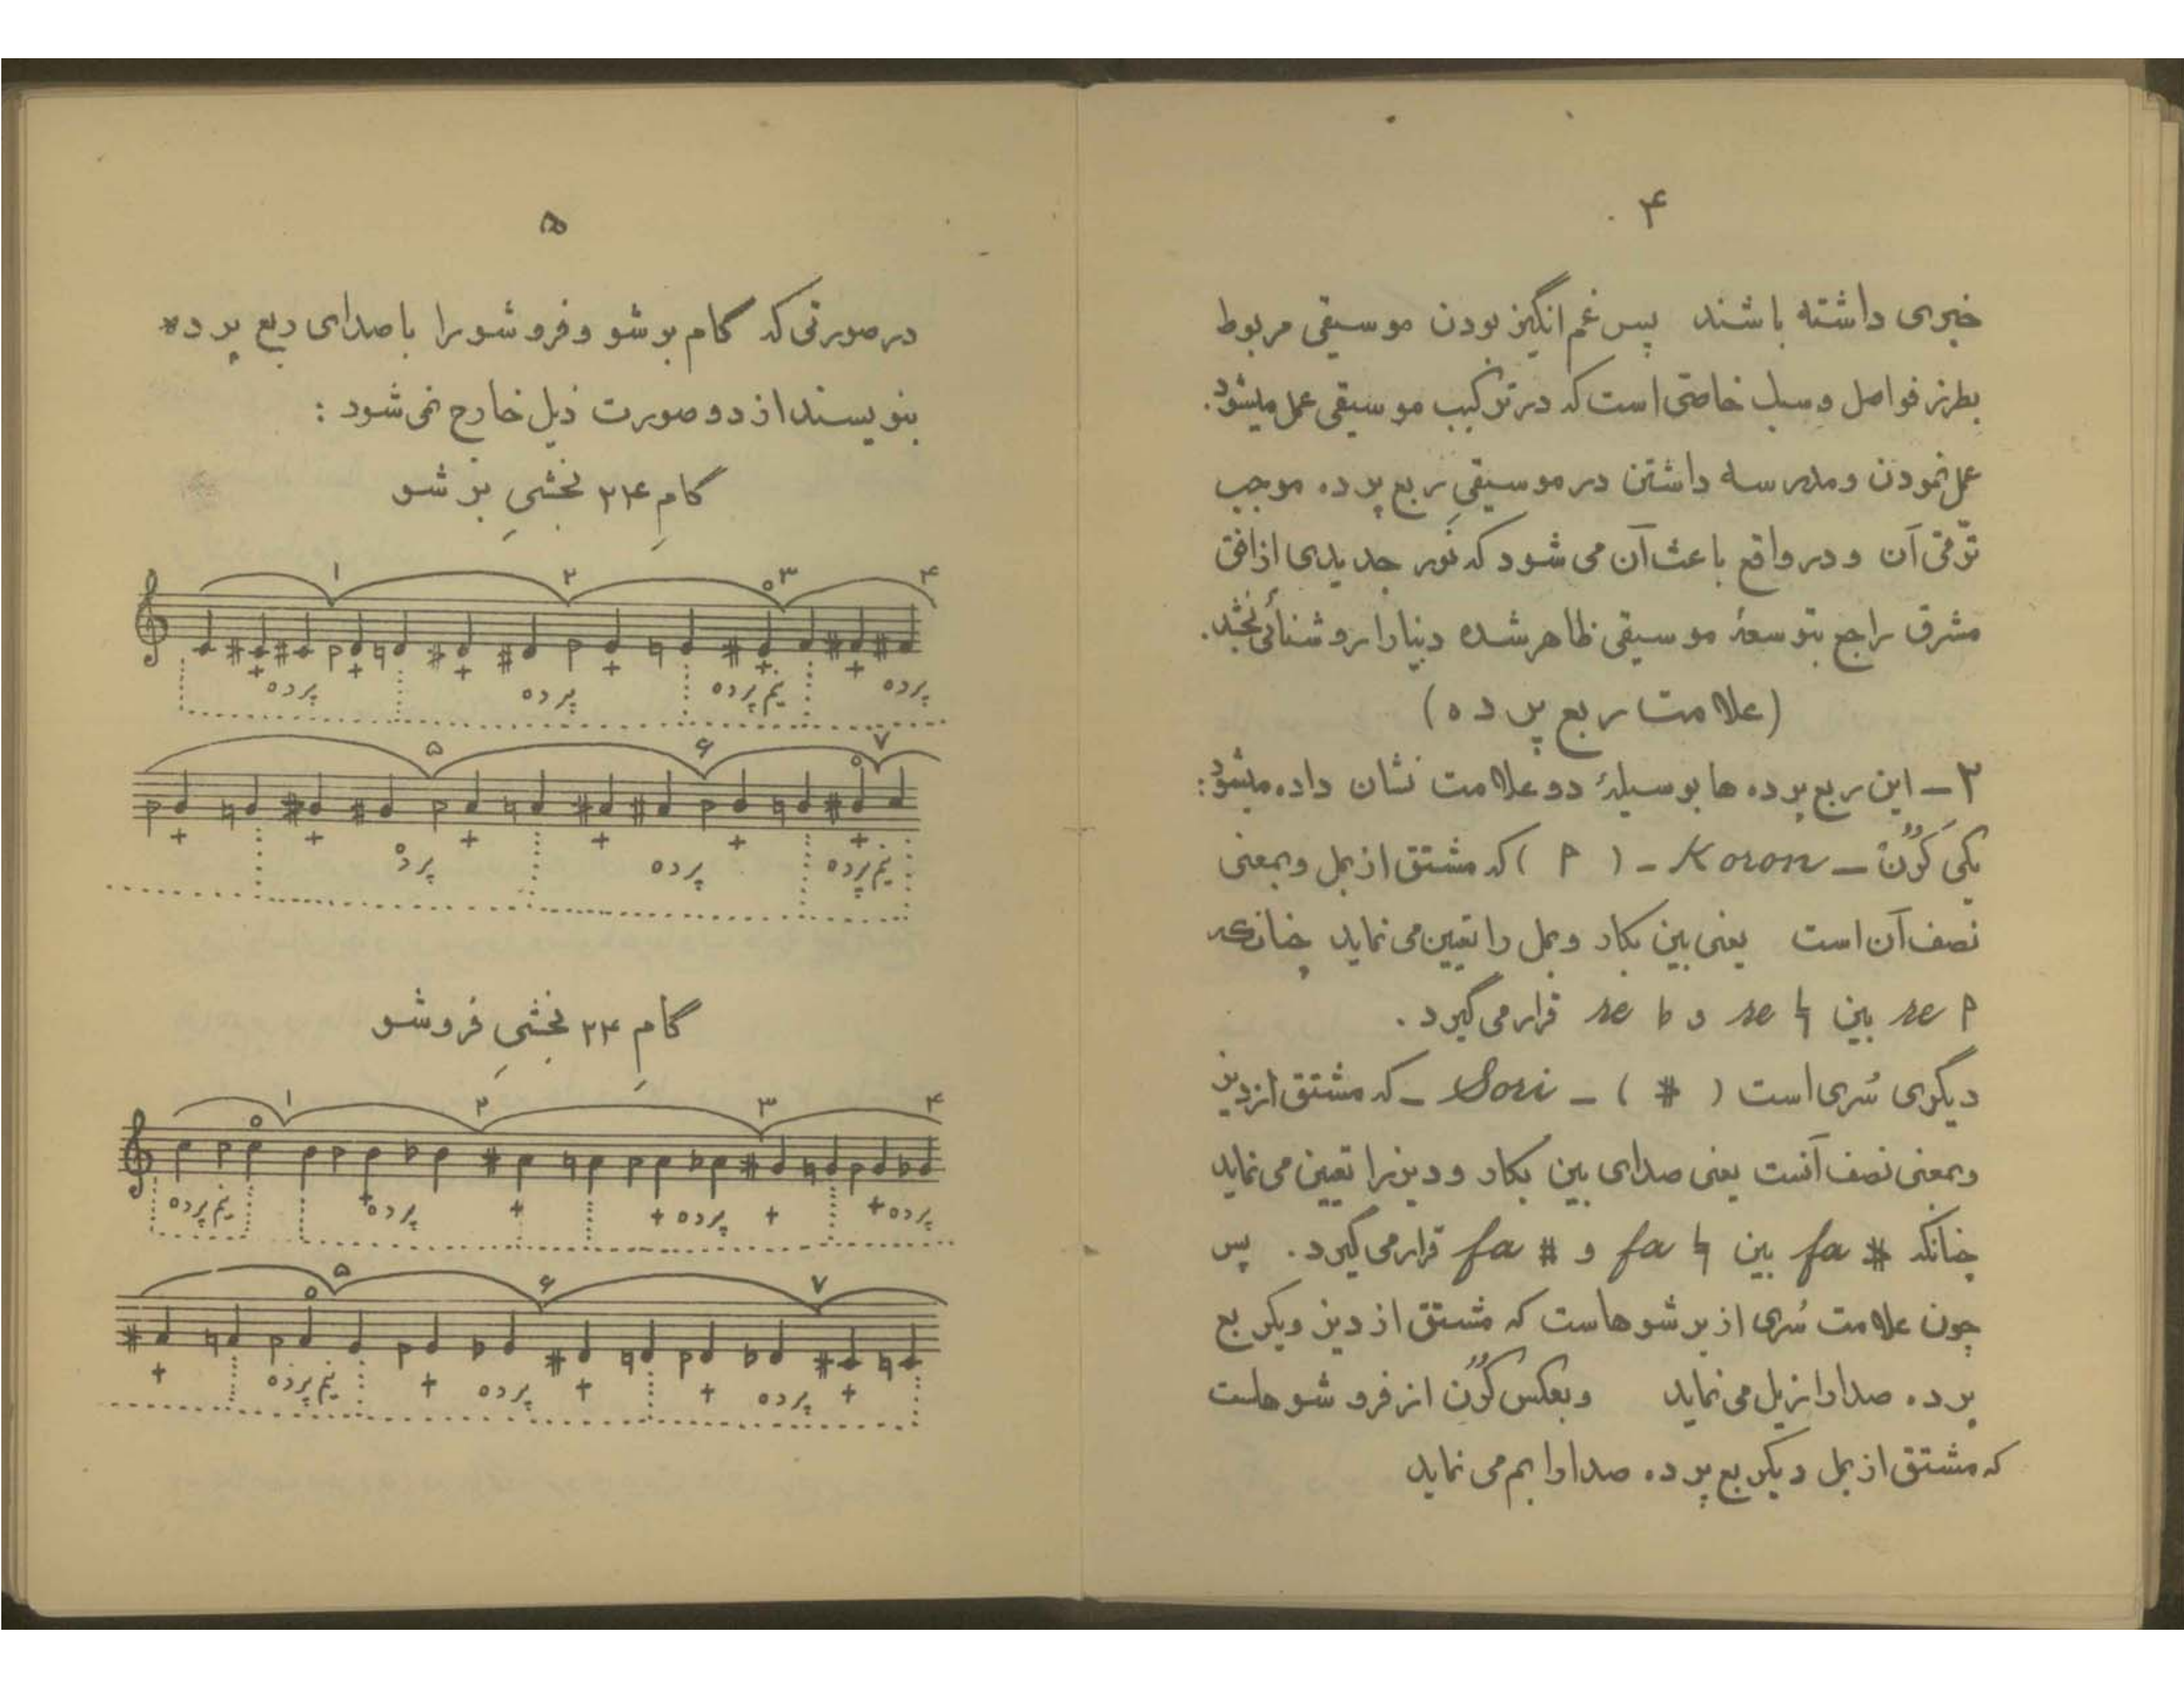 ۴
خبری داشته باشند پس غم انگیز بودن موسیقی مربوط
بطرز فواصل و سبک خاصّی است که در ترکیب موسیقی عمل میشود.
عمل نمودن و مدرسه داشتن در موسیقیِ ربع پرده موجب
ترقّی آن و در واقع باعث آن می شود که نور جدیدی از افق
مشرق راجع بتوسعهٔ موسیقی ظاهر شده دنیا را روشنائی بخشد.
(علامت ربع پرده)
۲ – این ربع پرده ها بوسیلهٔ دو علامت نشان داده میشود:
یکی کُرُن – Koron – ( p ) که مشتق از بمل و بمعنی
نصف آن است یعنی بین بکار و بمل را تعیین می نماید چنانکه
re p بین re ♮ و re b قرار می گیرد .
دیگری سُری است ( # ) – Sori – که مشتق از دیز
و بمعنی نصف آنست یعنی صدای بین بکار و دیز را تعیین می نماید
چنانکه fa # بین fa ♮ و fa # قرار می گیرد . پس
چون علامت سُری از برشوهاست که مشتق از دیز و یکربع
پرده صدا را زیل می نماید و بعکس کُرُن از فروشوهاست
که مشتق از بمل و یکربع پرده صدا را بم می نماید
۵
در صورتی که گام برشو و فروشو را با صدای ربع پرده
بنویسند از دو صورت ذیل خارج نمی شود :
گامِ ۲۴ بخشیِ برشو
۱ ۲ ۳ ۴
پرده پرده نیم پرده پرده
۵ ۶ ۷
پرده پرده نیم پرده
گامِ ۲۴ بخشیِ فروشو
۱ ۲ ۳ ۴
نیم پرده پرده پرده پرده
۵ ۶ ۷
نیم پرده پرده پرده